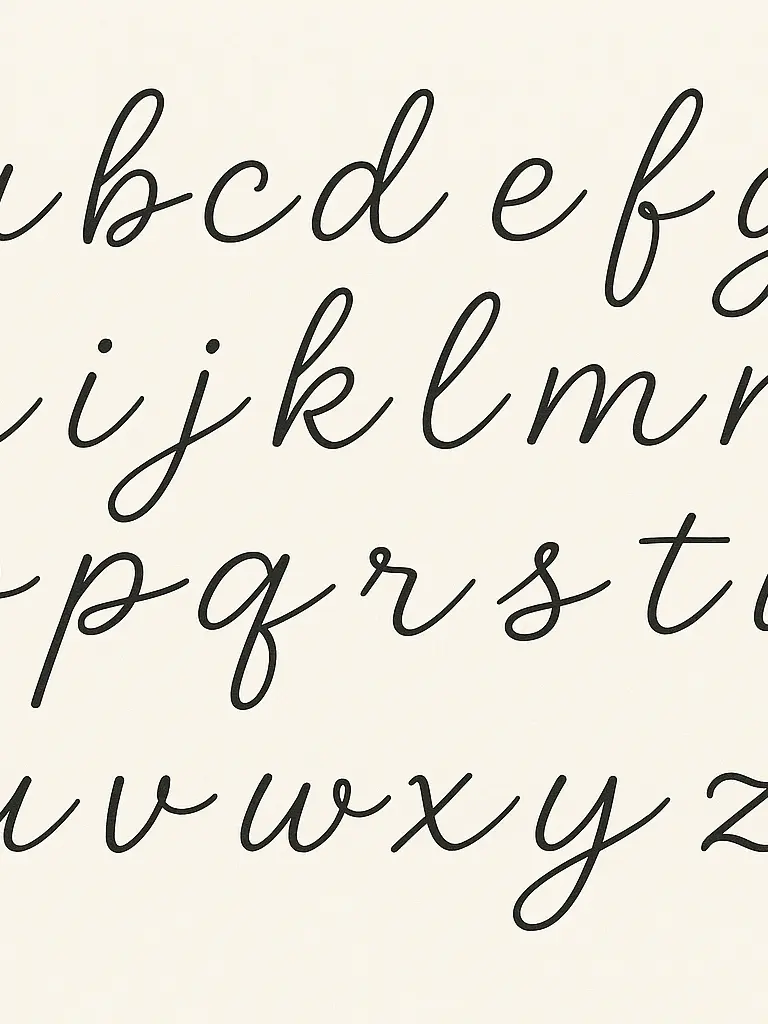 a b c d e f g
h i j k l m n
o p q r s t u
u v w x y z